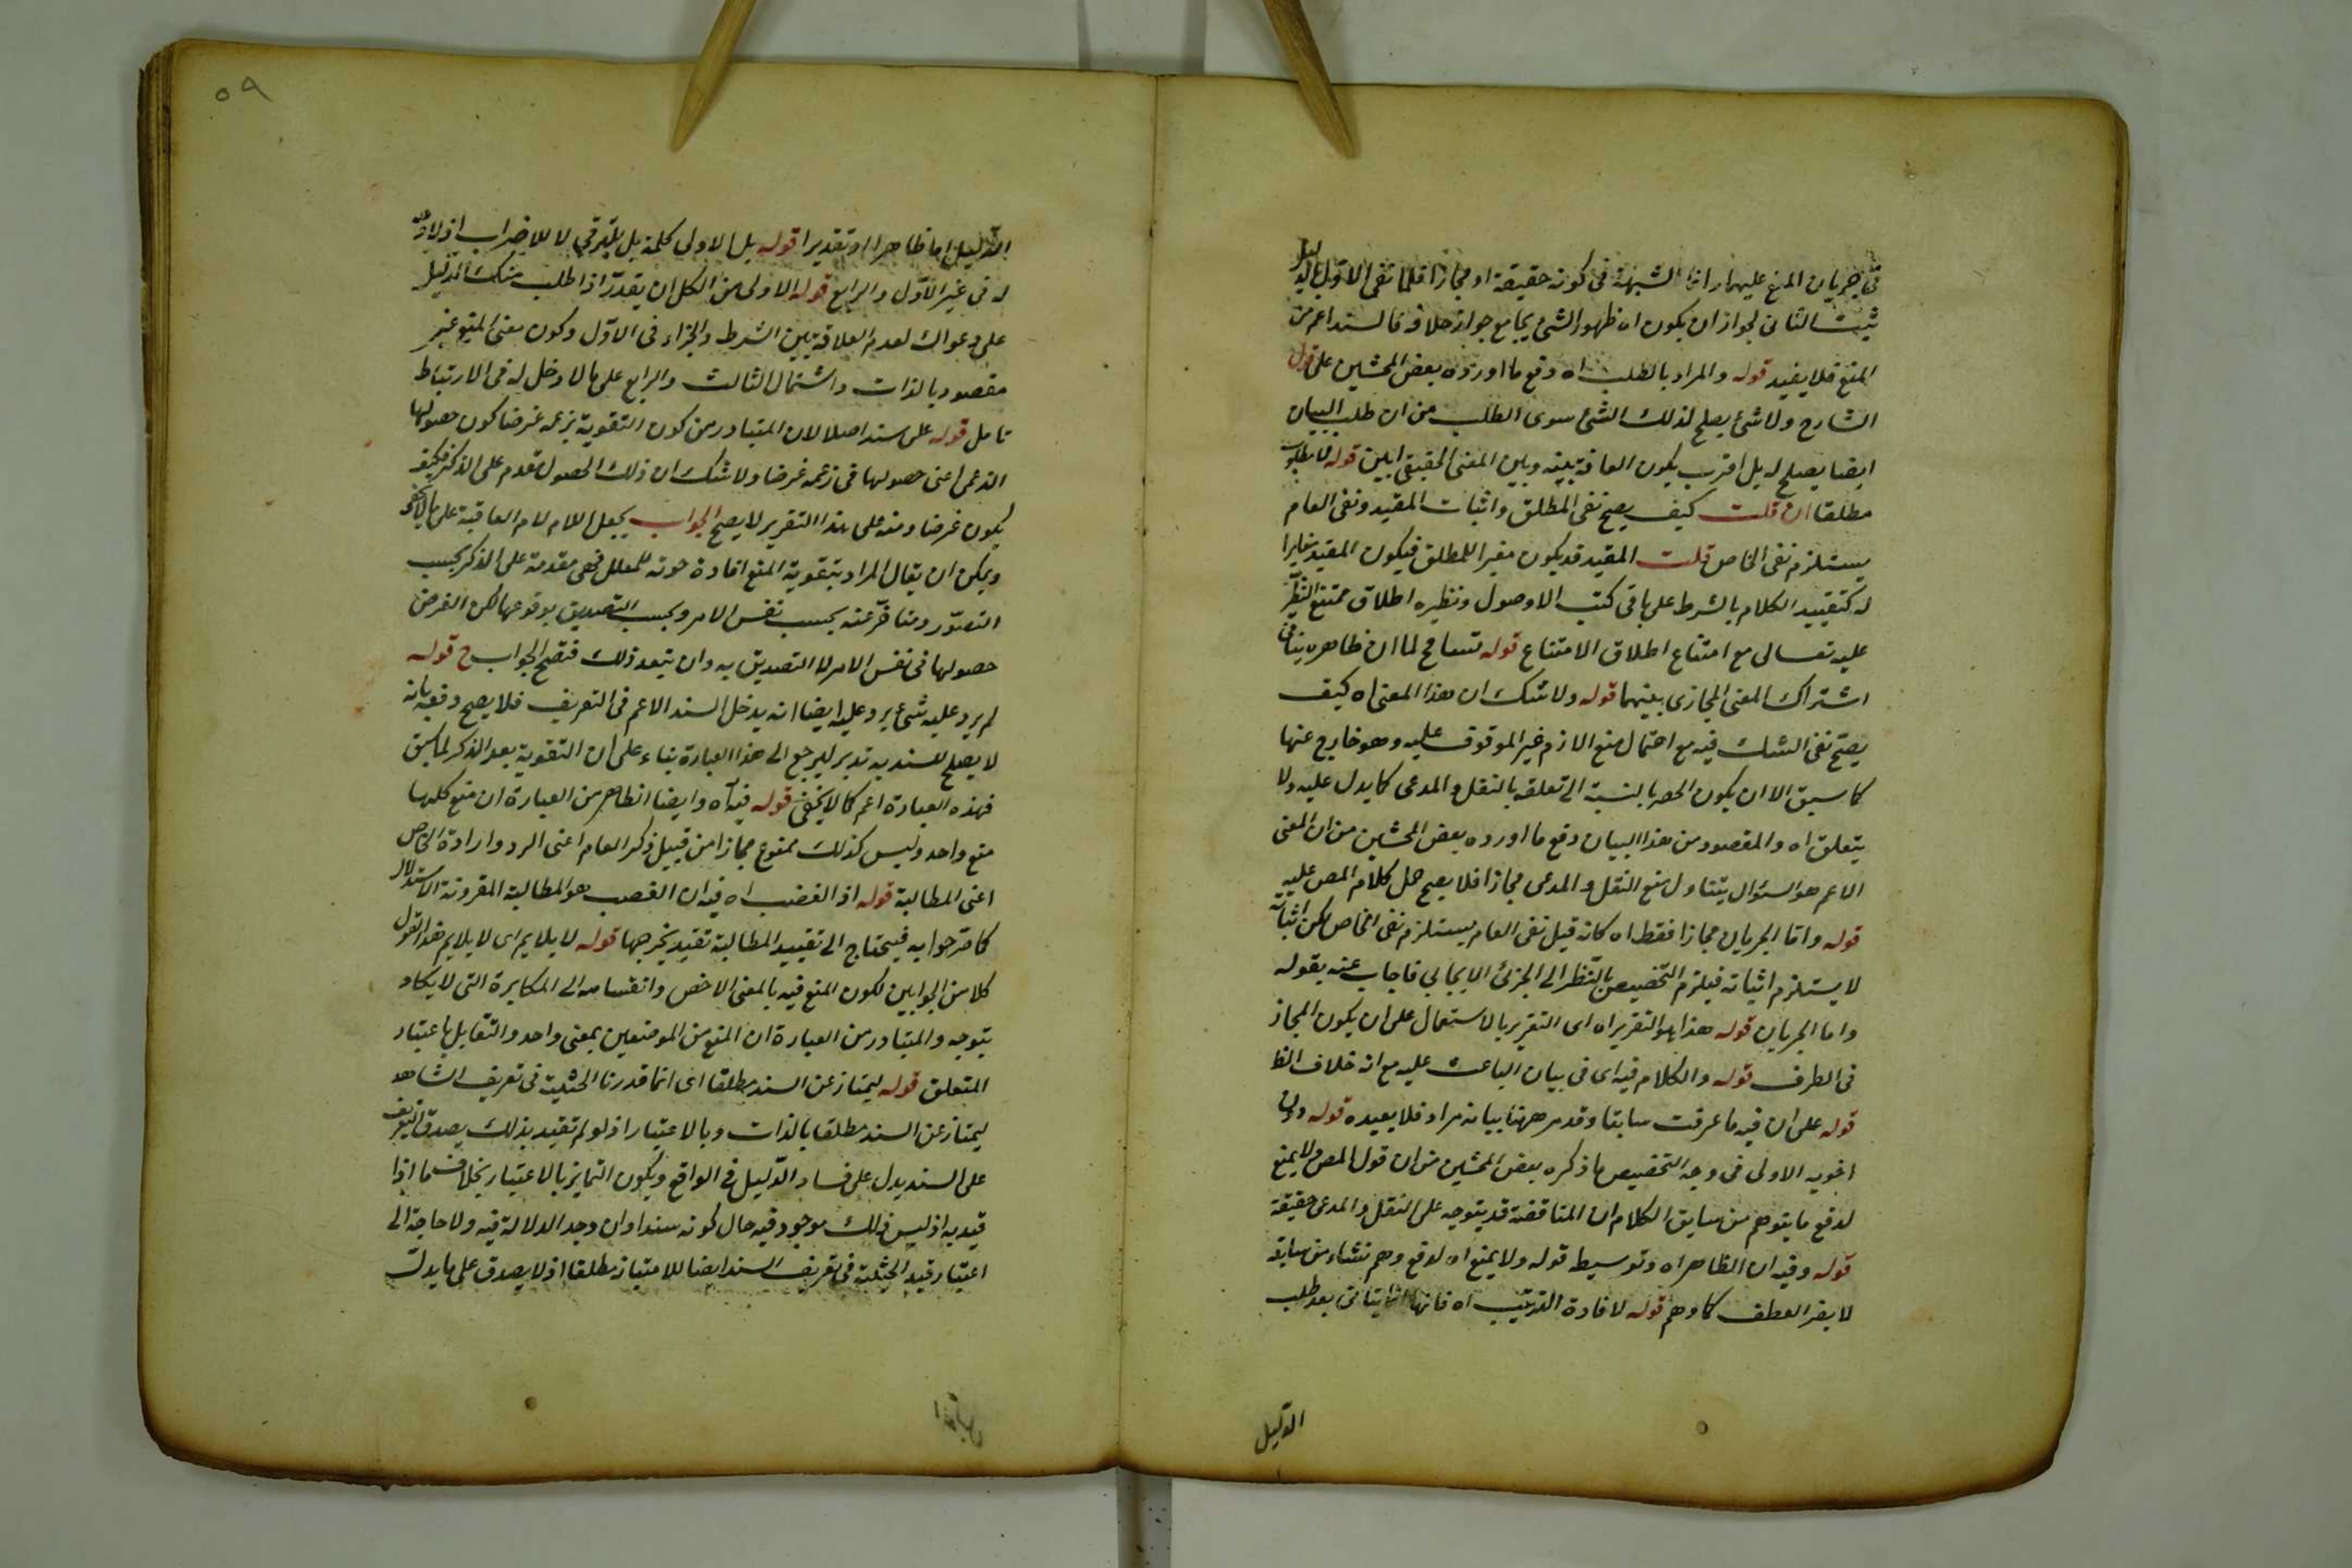 فى جريان المنع عليهما وانما الشبهة فى كونه حقيقة او مجازا فلما نفى الاول بالدليل
ثبت الثانى لجواز ان يكون اه ظهور الشئ يجامع جواز خلافه فالسند اعم من
المنع فلا يفيد قوله والمراد بالطلب اه دفع ما اورده بعض المحشين على قول
الشارح ولا شئ يصلح لذلك الشئ سوى الطلب من ان طلب البيان
ايضا يصلح له بل اقرب يكون العلاقة بينه وبين المعنى الحقيقى ابين قوله لا مطلوب
مطلقا ان قلت كيف يصح نفى المطلق واثبات المقيد ونفى العام
يستلزم نفى الخاص قلت المقيد قد يكون مغيرا للمطلق فيكون المقيد مغايرا
له كتقييد الكلام بالشرط على ما فى كتب الاوصول ونظيره اطلاق ممتنع النظير
عليه تعالى مع امتناع اطلاق الامتناع قوله تسامح لما ان ظاهره ينافى
اشتراك المعنى المجازى بينهما قوله ولا شك ان هذا المعنى اه كيف
يصح نفى الشك فيه مع احتمال منع الازم غير الموقوف عليه وهو خارج عنها
كما سبق الا ان يكون الحصر بالنسبة الى تعلقه بالنقل والمدعى كما يدل عليه ولا
يتعلق اه والمقصود من هذا البيان دفع ما اورده بعض المحشين من ان المعنى
الاعم هو السؤال يتناول منع النقل والمدعى مجازا فلا يصح حمل كلام المص عليه
قوله واما الجريان مجازا فقط اه كانه قيل نفى العام يستلزم نفى الخاص لكن اثباته
لا يستلزم اثباته فيلزم التخصيص بالنظر الى الجزئ الايجابي فاجاب عنه بقوله
واما الجريان قوله هذا هو التقرير اه اى التقرير بالاستعمال على ان يكون المجاز
فى الطرف قوله والكلام فيه اى فى بيان الباعث عليه مع انه خلاف الظ
قوله على ان فيه ما عرفت سابقا وقد مر ههنا بيانه مراد فلا يعيده قوله دون
اخويه الاولى فى وجه التخصيص ما ذكره بعض المحشين من ان قول المص ولا يمنع
لدفع ما يتوهم من سابق الكلام ان المناقضة قد يتوجه على النقل والمدعى حقيقة
قوله وفيه ان الظاهر اه وتوسيط قوله ولا يمنع اه لدفع وهم نشاء من سابقه
لا يضر العطف كما وهم قوله لافادة الترتيب اه فانها انما يتاتى بعد طلب
الدليل
٥٩
الدليل اما ظاهرا او تقديرا قوله بل الاولى كلمة بل للترقى لا للاضراب اذ لا وجه
له فى غير الاول والرابع قوله الاولى من الكل ان يقدر اذا طلب منك الدليل
على دعواك لعدم العلاقة بين الشرط والجزاء فى الاول وكون معنى المنع غير
مقصود بالذات واشتمال الثالث والرابع على ما لا دخل له فى الارتباط
تامل قوله على سند اصلا لان المتبادر من كون التقوية بزعمه غرضا كون حصولها
الذعمى اعنى حصولها فى زعمه غرضا ولا شك ان ذلك الحصول مقدم على الذكر فكيف
يكون غرضا ومنه على هذا التقرير لا يصح الجواب بجعل اللام لام العاقبة على ما لا يخفى
ويمكن ان يقال المراد بتقوية المنع افادة حوته للمعلل فهى مقدمة على الذكر بحسب
التصور ومتاخر عنه بحسب نفس الامر وبحسب التصديق بوقوعها لكن الغرض
حصولها فى نفس الامر لا التصديق به وان يتبعه ذلك فتصح الجواب ح قوله
لم يرد عليه شئ يرد عليه ايضا انه يدخل السند الاعم فى التعريف فلا يصح دفعه بانه
لا يصلح للسنديه تدبر ليرجع الى هذا العبارة بناء على ان التقوية بعد الذكر لما سبق
فهذه العبارة اعم كما لا يخفى قوله فيه اه وايضا الظاهر من العبارة ان منع كلها
منع واحد وليس كذلك ممنوع مجازا من قبيل ذكر العام اعنى الرد وارادة الخاص
اعنى المطالبة قوله اذ الغضب اه فيه ان الغصب هو المطالبة المقرونة الاستدلال
كما صرحوا به فيحتاج الى تقييد المطالبة تقيد يخرجها قوله لا يلايم اى لا يلايم هذا القول
كلا من الجوابين لكون المنع فيه بالمعنى الاخص وانقسامه الى المكابرة التى لا يكاد
يتوجه والمتبادر من العبارة ان المنع من الموضعين بمعنى واحد والتقابل باعتبار
المتعلق قوله ليمتاز عن السند مطلقا اى انما قدرنا الحيثية فى تعريف الشاهد
ليمتاز عن السند مطلقا بالذات وبالاعتبار اذ لو لم تقيد بذلك يصدق التعريف
على السند يدل على فساد الدليل فى الواقع ويكون التمايز بالاعتبار بخلاف ما اذا
قيد به اذ ليس ذلك موجود فيه حال كونه سندا وان وجد الدلالة فيه ولا حاجة الى
اعتبار قيد الحيثية فى تعريف السند ايضا للامتياز مطلقا اذ لا يصدق على ما يدل